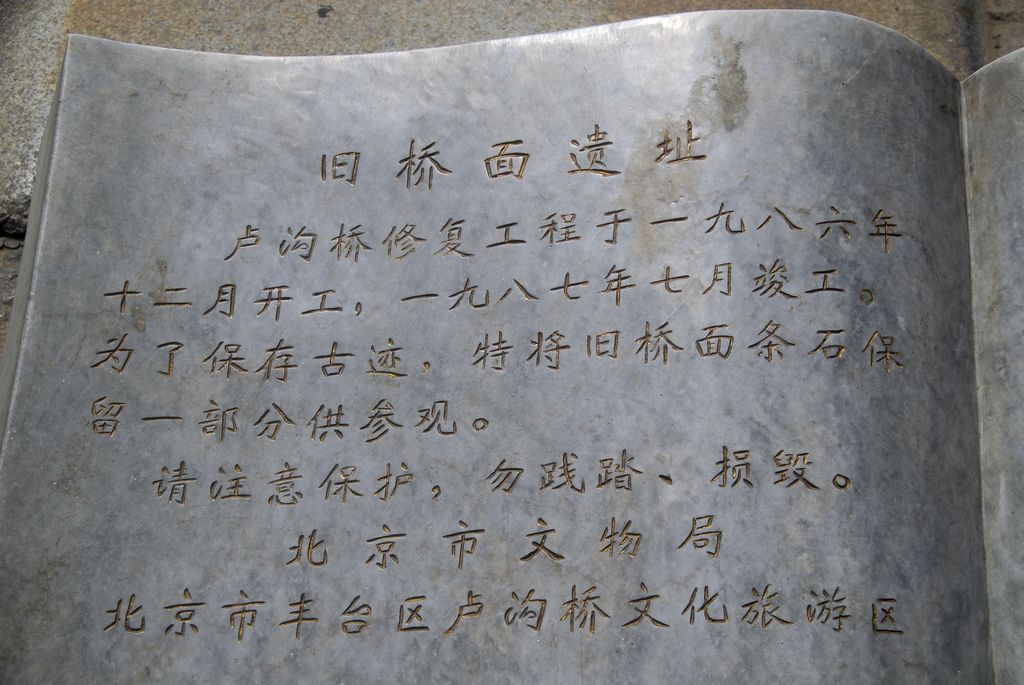 旧桥面遗址
卢沟桥修复工程于一九八六年
十二月开工，一九八七年七月竣工。
为了保存古迹，特将旧桥面条石保
留一部分供参观。
请注意保护，勿践踏、损毁。
北京市文物局
北京市丰台区卢沟桥文化旅游区